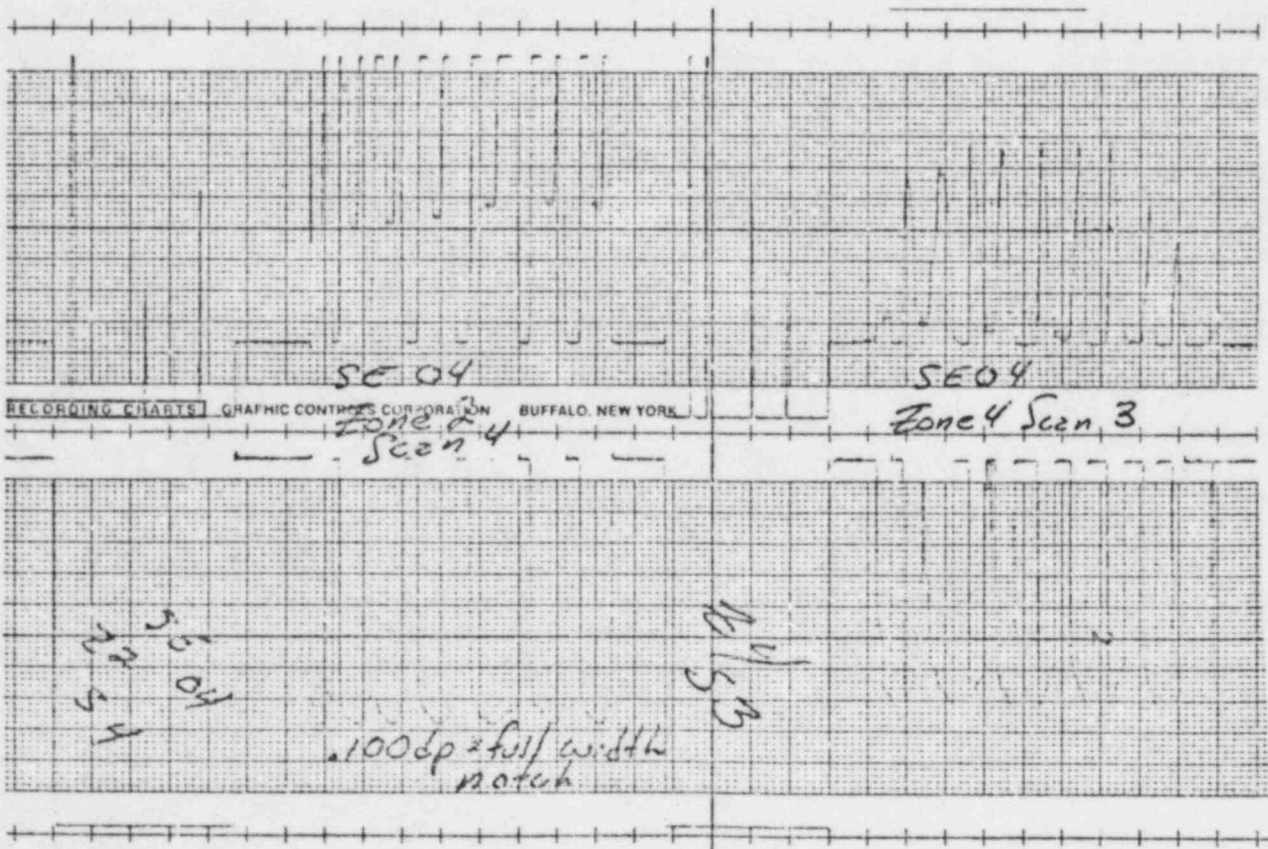 SE 04
SE04
RECORDING CHARTS GRAPHIC CONTROLS CORPORATION BUFFALO, NEW YORK
Zone 2
Scan 4
Zone 4 Scan 3
SE 04
Z2
S4
Z4
S3
.100dp x full width
notch